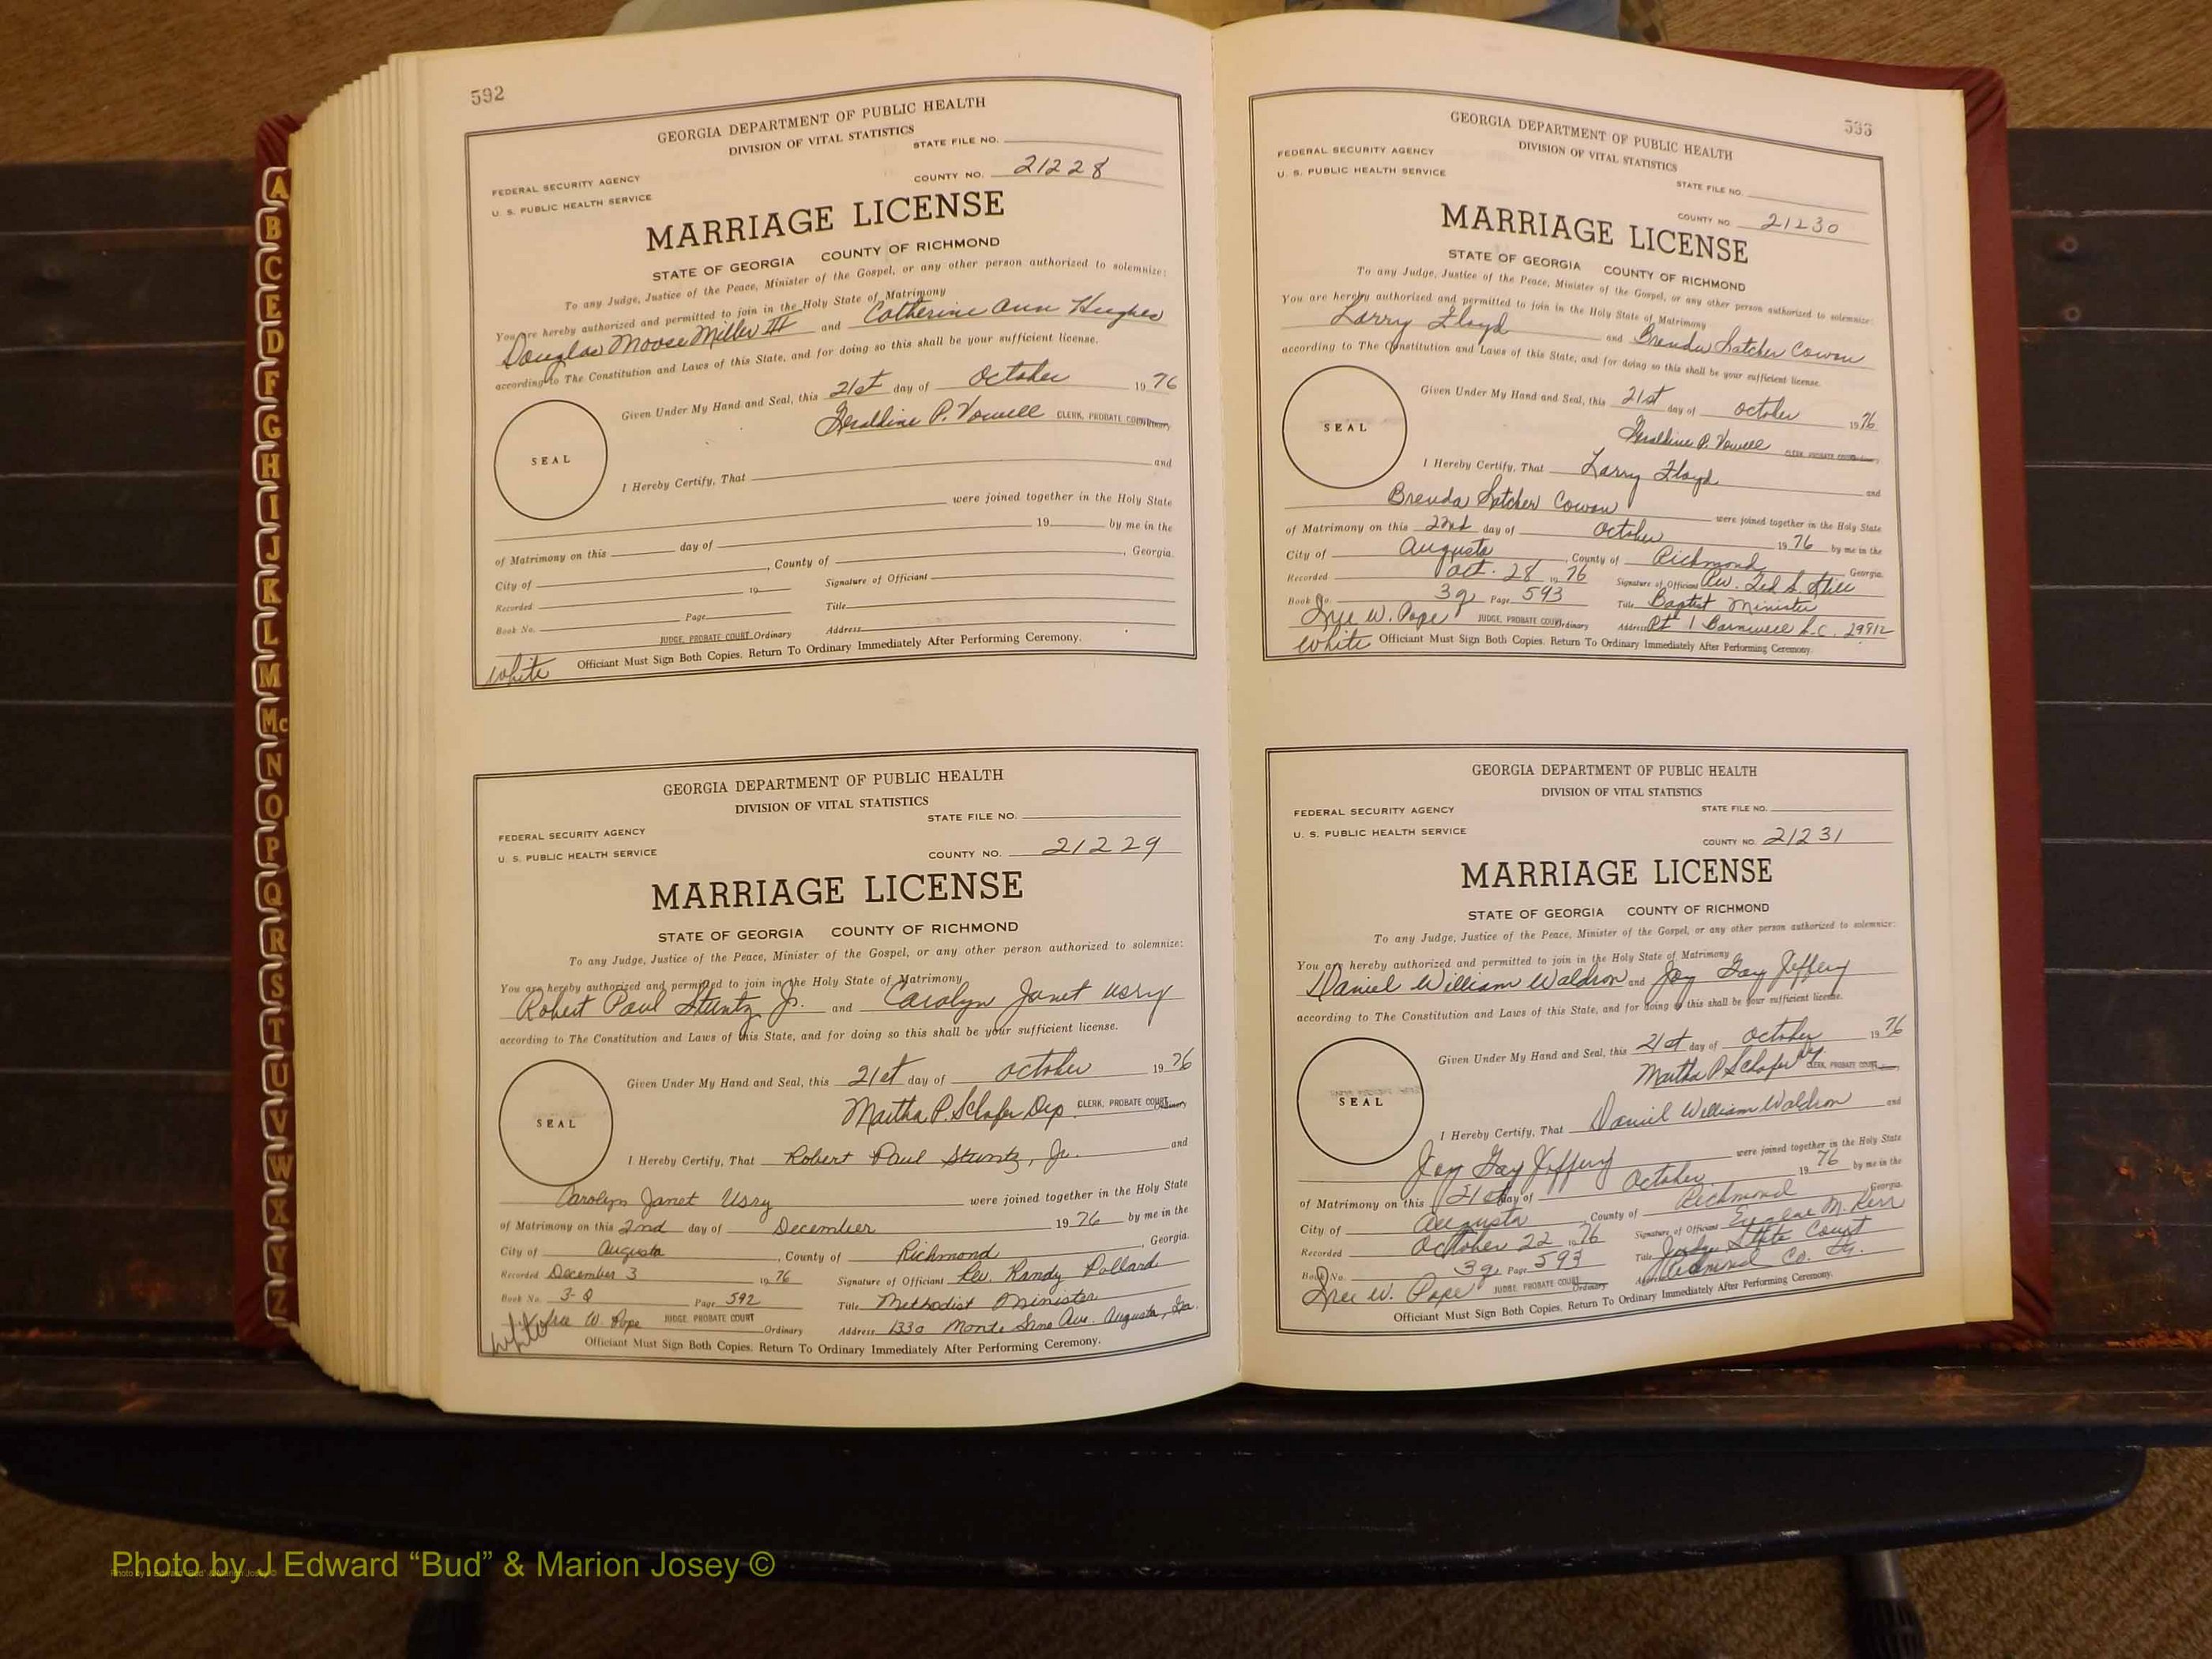 592
GEORGIA DEPARTMENT OF PUBLIC HEALTH
DIVISION OF VITAL STATISTICS
STATE FILE NO.
FEDERAL SECURITY AGENCY
U. S. PUBLIC HEALTH SERVICE
COUNTY NO. 21228
MARRIAGE LICENSE
STATE OF GEORGIA COUNTY OF RICHMOND
To any Judge, Justice of the Peace, Minister of the Gospel, or any other person authorized to solemnize:
You are hereby authorized and permitted to join in the Holy State of Matrimony
Douglas Moose Miller III and Catherine Ann Hughes
according to The Constitution and Laws of this State, and for doing so this shall be your sufficient license.
Given Under My Hand and Seal, this 21st day of October 1976
Geraldine P. Vowell CLERK, PROBATE COURT
SEAL
I Hereby Certify, That and
were joined together in the Holy State
of Matrimony on this day of 19 by me in the
City of , County of , Georgia.
Recorded 19 Signature of Official
Book No. Page Title
JUDGE, PROBATE COURT Ordinary Address
white Officiant Must Sign Both Copies. Return To Ordinary Immediately After Performing Ceremony.
GEORGIA DEPARTMENT OF PUBLIC HEALTH
DIVISION OF VITAL STATISTICS
STATE FILE NO.
FEDERAL SECURITY AGENCY
U. S. PUBLIC HEALTH SERVICE
COUNTY NO. 21229
MARRIAGE LICENSE
STATE OF GEORGIA COUNTY OF RICHMOND
To any Judge, Justice of the Peace, Minister of the Gospel, or any other person authorized to solemnize:
You are hereby authorized and permitted to join in the Holy State of Matrimony
Robert Paul Stuntz Jr. and Carolyn Janet Usry
according to The Constitution and Laws of this State, and for doing so this shall be your sufficient license.
Given Under My Hand and Seal, this 21st day of October 1976
Martha P. Schafer Dep. CLERK, PROBATE COURT Ordinary
SEAL
I Hereby Certify, That Robert Paul Stuntz, Jr. and
Carolyn Janet Usry were joined together in the Holy State
of Matrimony on this 2nd day of December 1976 by me in the
City of Augusta , County of Richmond , Georgia.
Recorded December 3 1976 Signature of Official Rev. Randy Pollard
Book No. 3-Q Page 592 Title Methodist Minister
W. Pope JUDGE, PROBATE COURT Ordinary Address 1330 Monte Sano Ave. Augusta, Ga.
white Officiant Must Sign Both Copies. Return To Ordinary Immediately After Performing Ceremony.
593
GEORGIA DEPARTMENT OF PUBLIC HEALTH
DIVISION OF VITAL STATISTICS
FEDERAL SECURITY AGENCY
U. S. PUBLIC HEALTH SERVICE
STATE FILE NO.
COUNTY NO. 21230
MARRIAGE LICENSE
STATE OF GEORGIA COUNTY OF RICHMOND
To any Judge, Justice of the Peace, Minister of the Gospel, or any other person authorized to solemnize:
You are hereby authorized and permitted to join in the Holy State of Matrimony
Larry Floyd and Brenda Satcher Cowan
according to The Constitution and Laws of this State, and for doing so this shall be your sufficient license.
Given Under My Hand and Seal, this 21st day of October 1976
Geraldine P. Vowell CLERK, PROBATE COURT
SEAL
I Hereby Certify, That Larry Floyd and
Brenda Satcher Cowan were joined together in the Holy State
of Matrimony on this 22nd day of October 1976 by me in the
City of Augusta , County of Richmond Georgia.
Recorded Oct. 28 1976 Signature of Official Rev. Ted S. Still
Book No. 3Q Page 593 Title Baptist Minister
W. Pope JUDGE, PROBATE COURT Ordinary Address Rt 1 Barnwell S.C. 29812
white Officiant Must Sign Both Copies. Return To Ordinary Immediately After Performing Ceremony.
GEORGIA DEPARTMENT OF PUBLIC HEALTH
DIVISION OF VITAL STATISTICS
FEDERAL SECURITY AGENCY
STATE FILE NO.
U. S. PUBLIC HEALTH SERVICE
COUNTY NO. 21231
MARRIAGE LICENSE
STATE OF GEORGIA COUNTY OF RICHMOND
To any Judge, Justice of the Peace, Minister of the Gospel, or any other person authorized to solemnize:
You are hereby authorized and permitted to join in the Holy State of Matrimony
Daniel William Waldron and Joy Gay Jeffery
according to The Constitution and Laws of this State, and for doing so this shall be your sufficient license.
Given Under My Hand and Seal, this 21st day of October 1976
Martha P. Schafer CLERK, PROBATE COURT
SEAL
I Hereby Certify, That Daniel William Waldron and
Joy Gay Jeffery were joined together in the Holy State
of Matrimony on this 21st day of October 1976 by me in the
City of Augusta County of Richmond Georgia.
Recorded October 22 1976 Signature of Official M. Kerr
Book No. 3Q Page 593 Title Judge State Court
W. Pope JUDGE, PROBATE COURT Ordinary Address Richmond Co. Ga.
Officiant Must Sign Both Copies. Return To Ordinary Immediately After Performing Ceremony.
A
B
C
E
D
F
G
H
I
J
K
L
M
Mc
N
O
P
Q
R
S
T
U
V
W
X
Y
Z
Photo by J Edward “Bud” & Marion Josey ©
Photo by J Edward "Bud" & Marion Josey ©